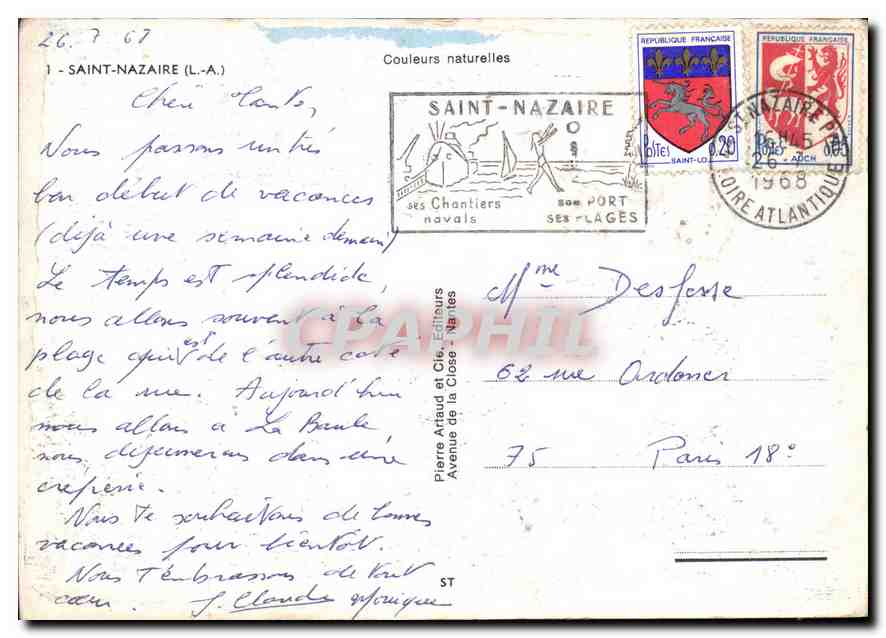 26. 7 68
1 - SAINT-NAZAIRE (L.-A.)
Couleurs naturelles
Nous passons un très
bon début de vacances
(déjà une semaine demain)
Le temps est splendide,
nous allons souvent à la
plage qui est de l'autre coté
de la rue. Aujourd'hui
nous allons à La Baule,
nous déjeunerons dans une
crêperie.
Nous te souhaitons de bonnes
vacances pour bientôt.
Nous t'embrassons de tout
cœur. J. Claude Monique
ST
Pierre Artaud et Cie, Editeurs
Avenue de la Close - Nantes
SAINT-NAZAIRE
ses Chantiers
navals
son PORT
SES PLAGES
REPUBLIQUE FRANÇAISE
POSTES 0.20
SAINT-LO
REPUBLIQUE FRANÇAISE
0.05
AUCH
ST NAZAIRE
26-7
1968
LOIRE ATLANTIQUE
Mme Desfosse
62 rue Ordener
75 Paris 18°
CPAPHIL